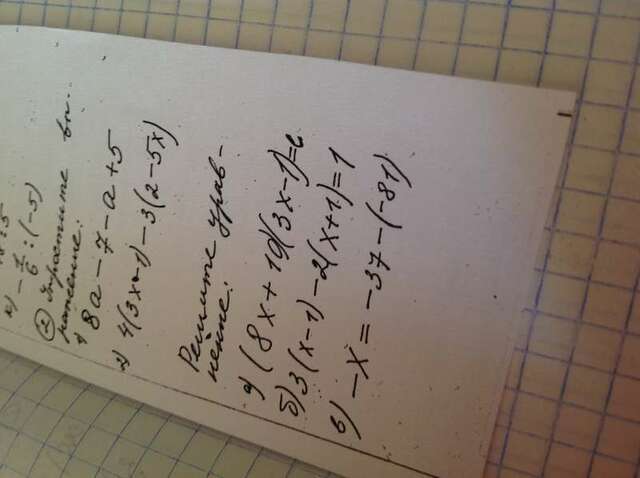 а) - 7/6 : (-5)
② Упростите вы-
ражение:
1) 8a - 7 - a + 5
2) 4(3x - 1) - 3(2 - 5x)
Решите урав-
нение:
а) (8x + 10)(3x - 1) = 6
б) 3(x - 1) - 2(x + 1) = 1
в) -x = -37 - (-81)